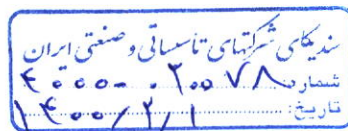 سندیکای شرکتهای تأسیساتی و صنعتی ایران
شماره: ۴۰۰۰-۰۲۰۰۷۸
تاریخ: ۱۴۰۰/۲/۱